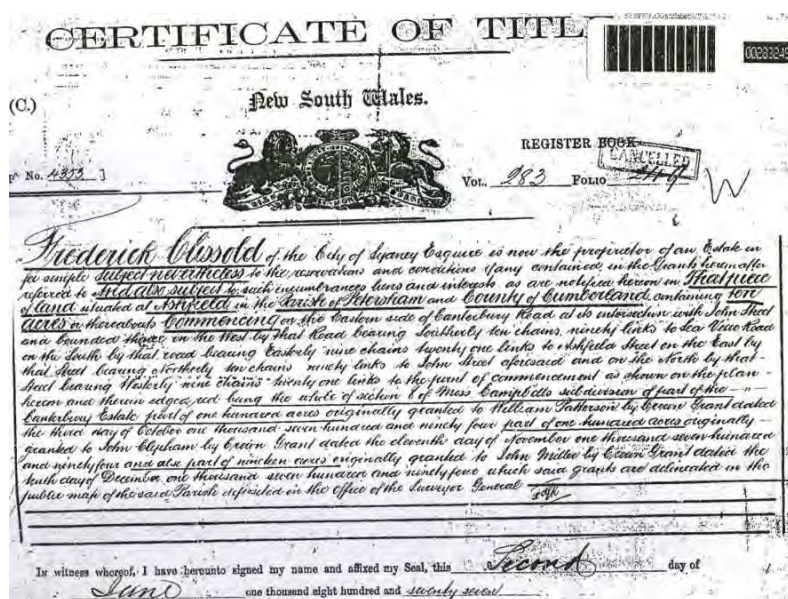 CERTIFICATE OF TITL
00283249
(C.)
New South Wales.
REGISTER BOOK
CANCELLED
No. 4353 ]
VOL. 283 FOLIO 249
W
Frederick Clissold of the City of Sydney Esquire is now the proprietor of an Estate in
fee simple subject nevertheless to the reservations and conditions if any contained in the Grants hereinafter
referred to And also subject to such incumbrances liens and interests as are notified hereon in That piece
of land situated at Ashfield in the Parish of Petersham and County of Cumberland containing ten
acres or thereabouts Commencing on the Eastern side of Canterbury Road at its intersection with John Street
and bounded thence on the West by that Road bearing Southerly ten chains, ninety links to Sea View Road
on the South by that road bearing Easterly nine chains twenty one links to Ashfield Street on the East by
that Street bearing Northerly ten chains ninety links to John Street aforesaid and on the North by that
Street bearing Westerly nine chains twenty one links to the point of commencement as shown on the plan
hereon and therein edged red being the whole of section 8 of Miss Campbells subdivision of part of the
Canterbury Estate part of one hundred acres originally granted to William Patterson by Crown Grant dated
the third day of October one thousand seven hundred and ninety four part of one hundred acres originally
granted to John Clepham by Crown Grant dated the eleventh day of November one thousand seven hundred
and ninety four and also part of nineteen acres originally granted to John Miller by Crown Grant dated the
tenth day of December one thousand seven hundred and ninety four which said grants are delineated in the
public map of the said Parish deposited in the office of the Surveyor General
In witness whereof, I have hereunto signed my name and affixed my Seal, this Second day of
June one thousand eight hundred and seventy seven